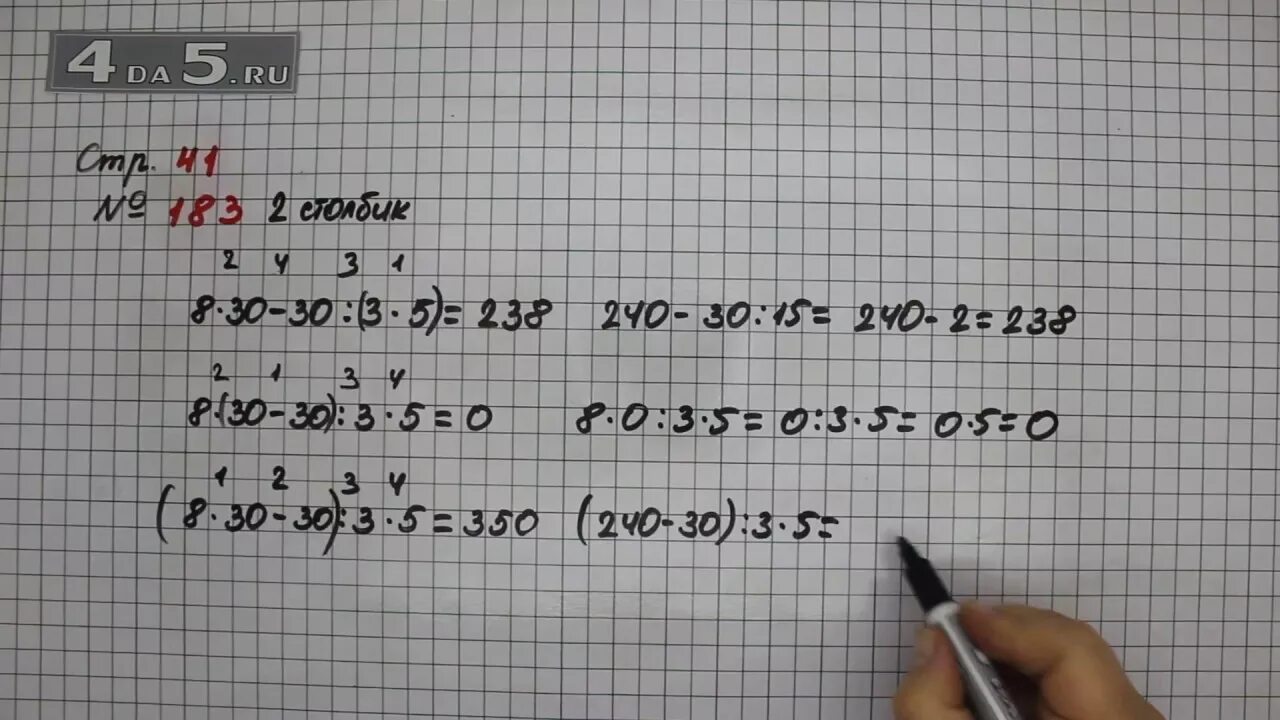 4DA5.RU
Стр. 41
№ 183 2 столбик
2 4 3 1
8·30-30:(3·5)=238 240-30:15=240-2=238
2 1 3 4
8·(30-30):3·5=0 8·0:3·5=0:3·5=0·5=0
1 2 3 4
(8·30-30):3·5=350 (240-30):3·5=